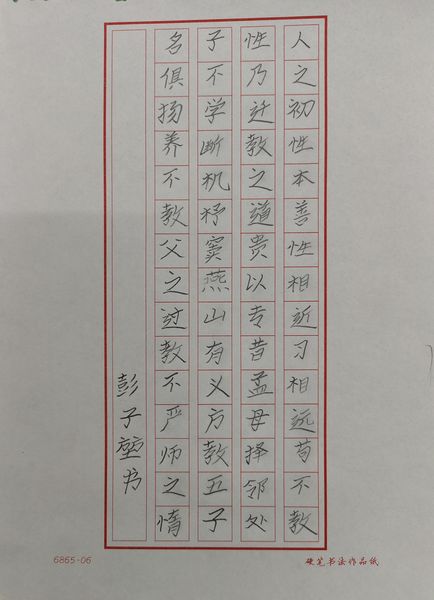 人之初性本善性相近习相远苟不教
性乃迁教之道贵以专昔孟母择邻处
子不学断机杼窦燕山有义方教五子
名俱扬养不教父之过教不严师之惰
彭子堃书
6865-06
硬笔书法作品纸